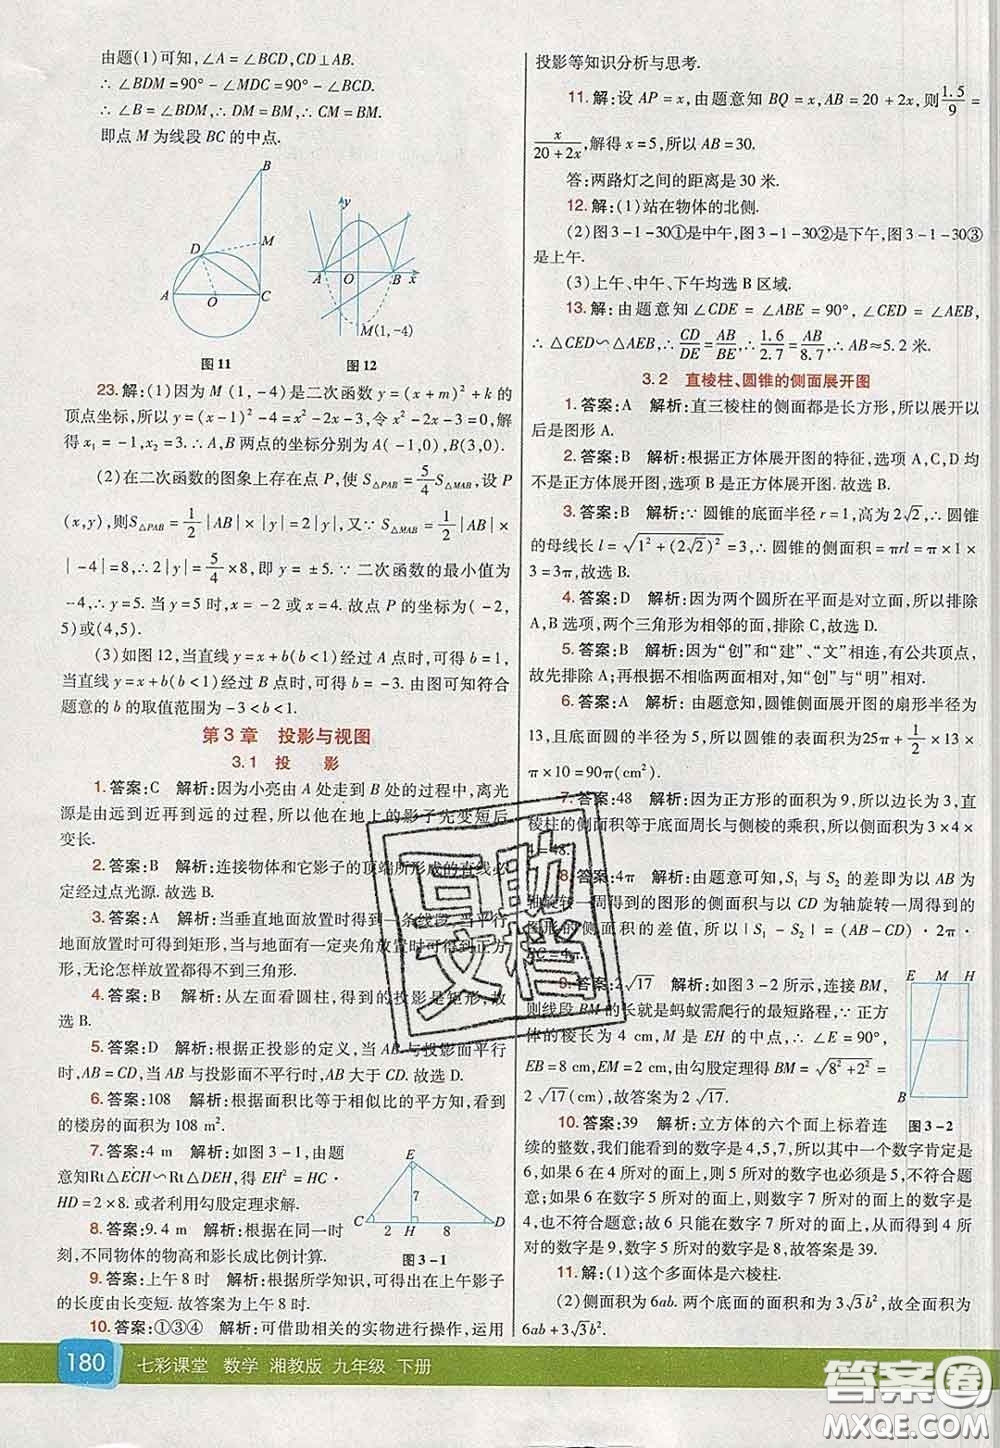 由题(1)可知,∠A=∠BCD,CD⊥AB.
∴∠BDM=90°-∠MDC=90°-∠BCD
=∠CBM,∴DM=BM,∴CM=BM.
即点 M 为线段 BC 的中点.
B
D
M
A
O
C
图11
y
A
O
B
x
M(1,-4)
图12
23.解:(1)因为 M(1,-4)是二次函数 y=(x+m)²+k 的
顶点坐标,所以 y=(x-1)²-4=x²-2x-3,令 x²-2x-3=0,解
得 x₁=-1,x₂=3.∴A,B 两点的坐标分别为 A(-1,0),B(3,0).
(2)在二次函数的图象上存在点 P,使 S△PAB=5/4 S△MAB,设 P
(x,y),则S△PAB=1/2|AB|×|y|=2|y|,又∵S△MAB=1/2|AB|×
|-4|=8,∴2|y|=5/4×8,即 y=±5.∵二次函数的最小值为
-4,∴y=5.当 y=5 时,x=-2 或 x=4.故点 P 的坐标为(-2,
5)或(4,5).
(3)如图 12,当直线 y=x+b(b<1)经过 A 点时,可得 b=1,
当直线 y=x+b(b<1)经过 B 点时,可得 b=-3,由图可知符合
题意的 b 的取值范围为-3<b<1.
第3章 投影与视图
3.1 投 影
1.答案:C 解析:因为小亮由 A 处走到 B 处的过程中,离光
源是由远到近再到远的过程,所以他在地上的影子先变短后
变长.
2.答案:B 解析:连接物体和它影子的顶端所形成的直线必
定经过点光源.故选 B.
3.答案:A 解析:当垂直地面放置时得到一条线段,当平行
地面放置时可得到矩形,当与地面有一定夹角放置时可得到正方
形,无论怎样放置都得不到三角形.
4.答案:B 解析:从左面看圆柱,得到的投影是矩形,故
选 B.
5.答案:D 解析:根据正投影的定义,当 AB 与投影面平行
时,AB=CD,当 AB 与投影面不平行时,AB 大于 CD.故选 D.
6.答案:108 解析:根据面积比等于相似比的平方知,看到
的楼房的面积为 108 m².
7.答案:4 m 解析:如图 3-1,由题
意知Rt△ECH∽Rt△DEH,得 EH²=HC·
HD=2×8.或者利用勾股定理求解.
E
7
C
2
H
8
D
图3-1
8.答案:9.4 m 解析:根据在同一时
刻,不同物体的物高和影长成比例计算.
9.答案:上午 8 时 解析:根据所学知识,可得出在上午影子
的长度由长变短.故答案为上午 8 时.
10.答案:①③④ 解析:可借助相关的实物进行操作,运用
投影等知识分析与思考.
11.解:设 AP=x,由题意知 BQ=x,AB=20+2x,则1.5/9=
x/(20+2x),解得 x=5,所以 AB=30.
答:两路灯之间的距离是 30 米.
12.解:(1)站在物体的北侧.
(2)图 3-1-30①是中午,图 3-1-30②是下午,图 3-1-30③
是上午.
(3)上午、中午、下午均选 B 区域.
13.解:由题意知∠CDE=∠ABE=90°,∠CED=∠AEB,
∴△CED∽△AEB,∴CD/DE=AB/BE,∴1.6/2.7=AB/8.7,∴AB≈5.2 米.
3.2 直棱柱、圆锥的侧面展开图
1.答案:A 解析:直三棱柱的侧面都是长方形,所以展开以
后是图形 A.
2.答案:B 解析:根据正方体展开图的特征,选项 A,C,D
均不是正方体展开图,选项 B 是正方体展开图.故选 B.
3.答案:B 解析:∵圆锥的底面半径 r=1,高为 2√2,∴圆锥
的母线长 l=√(1²+(2√2)²)=3,∴圆锥的侧面积=πrl=π×1×
3=3π,故选 B.
4.答案:D 解析:因为两个圆所在平面是对立面,所以排除
A,B 选项,两个三角形为相邻的面,排除 C,故选 D.
5.答案:B 解析:因为“创”和“建”、“文”相连,有公共顶点,
故先排除 A;再根据不相临两两相对,知“创”与“明”相对.
6.答案:A 解析:由题意知,圆锥侧面展开图的扇形半径为
13,且展开图底面圆的半径为 5,所以圆锥的表面积为25π+1/2×13×
π×10=90π(cm²).
7.答案:48 解析:因为正方形的面积为 9,所以边长为 3,直
棱柱的侧面积等于底面周长与侧棱的乘积,所以侧面积为 3×4×
4=48.
8.答案:4π 解析:由题意可知,S₁ 与 S₂ 的差即为以 AB 为
轴旋转一周得到的图形的侧面积与以 CD 为轴旋转一周得到的
图形的侧面积的差值,所以|S₁-S₂|=(AB-CD)·2π·
BC=4π.
9.答案:2√17 解析:如图 3-2 所示,连接 BM,
则线段 BM 的长就是蚂蚁需爬行的最短路程,∵正方
体的棱长为 4 cm,M 是 EH 的中点,∴∠E=90°,
EB=8 cm,EM=2 cm,由勾股定理得 BM=√(8²+2²)=
2√17(cm),故答案为 2√17.
E M H
B
图3-2
10.答案:39 解析:立方体的六个面上标着连
续的整数,我们能看到的数字是 4,5,7,所以其中一个数字肯定是
6,如果 6 在 4 所对的面上,则 5 所对的数字也必须是 5,不符合题
意;如果 6 在数字 5 所对的面上,则数字 7 所对的面上的数字是
4,也不符合题意;故 6 只能在数字 7 所对的面上,从而得到 4 所
对的数字为 9,数字 5 所对的数字是 8,故答案为 39.
11.解:(1)这个多面体是六棱柱.
(2)侧面积为 6ab.两个底面的面积和为 3√3b²,故全面积为
6ab+3√3b².
互助
文档
180 七彩课堂 数学 湘教版 九年级 下册
答案圈
MXQE.COM